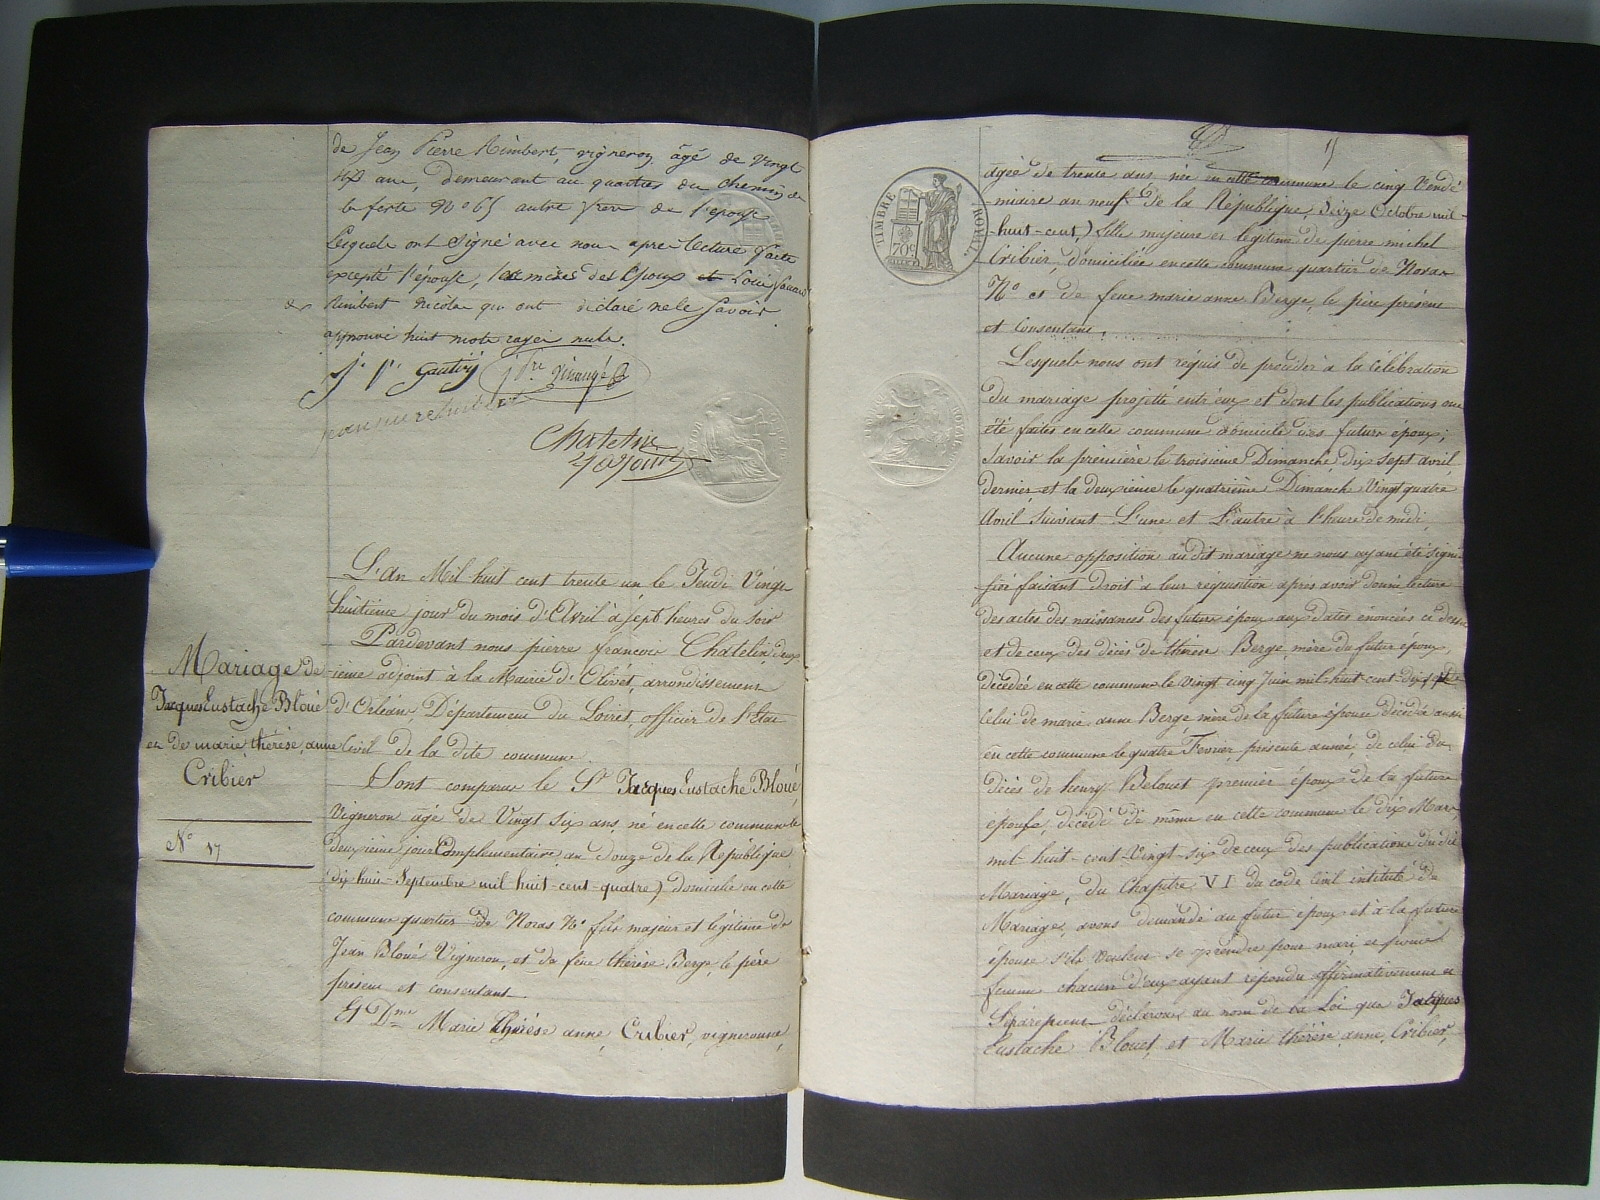 de Jean Pierre Rimbert, vigneron, âgé de vingt
ans, demeurant au quartier du chemin de
la ferté N° 65 autre frere de l'epouse
Lesquels ont signé avec nous apres lecture faite
excepté l'épouse, les meres des Epoux et Louis
Rimbert Nicolas qui ont déclaré ne le savoir
approuvé huit mots rayés nuls.
Chatelin
adjoint
L'An Mil huit cent trente un le Jeudi Vingt
huitième jour du mois d'Avril à sept heures du soir
Pardevant nous pierre francois Chatelin, deux
ième adjoint à la Mairie d'Olivet, arrondissement
d'Orléans, Département du Loiret, officier de l'Etat
Civil de la dite commune
Mariage de
Jacques Eustache Bloué
et de marie thérèse, anne
Cribier
N° 17
Sont comparu le Sr Jacques Eustache Bloué,
Vigneron âgé de Vingt Six ans, né en cette commune le
deuxième jour Complementaire an douze de la République
(dix huit Septembre mil huit-cent-quatre) domicilié en cette
commune quartier de Noras N° fils majeur et légitime de
Jean Bloué Vigneron, et de feue thérèse Berge, le père
présent et consentant.
Et Dme Marie Thérèse anne, Cribier, vigneronne,
âgée de trente ans née en cette commune le cinq Vendé
miaire an neuf de la République, (Seize Octobre mil-
-huit-cent,) fille majeure et légitime de pierre michel
Cribier, domiciliée en cette commune quartier de Noras
N° et de feue marie anne Berge, le père présent
et Consentant.
TIMBRE ROYAL
70c
Lesquels nous ont réquis de procéder à la célébration
du mariage projetté entr'eux et dont les publications ont
été faites en cette commune domicile des futurs époux;
Savoir la première le troisième Dimanche dix sept avril
dernier et la deuxième le quatrième Dimanche Vingt quatre
Avril Suivant L'une et L'autre à l'heure de midi,
Aucune opposition au dit mariage ne nous ayant été signi-
fiée faisant droit à leur réquisition apres avoir donné lecture
des actes des naissances des futurs époux aux dates énoncées ci dessus
et de ceux des décès de thérèse Berge, mère du futur époux,
décedée en cette commune le vingt cinq Juin mil-huit-cent
Celui de marie anne Berge, mère de la future épouse décédée aussi
en cette commune le quatre Fevrier, présente année, de celui du
décès de henry Belouet premier époux de la future
épouse, décédé de même en cette commune le dix Mars
mil-huit-cent Vingt-six de ceux des publications du dit
Mariage, du Chapitre VI du code Civil intitulé du
Mariage, avons demandé au futur époux et à la future
épouse s'ils veulent se prendre pour mari et pour
femme chacun d'eux ayant répondu affirmativement et
Séparément déclarons au nom de la Loi que Jacques
Eustache Blouet, et Marie thérèse, anne, Cribier,